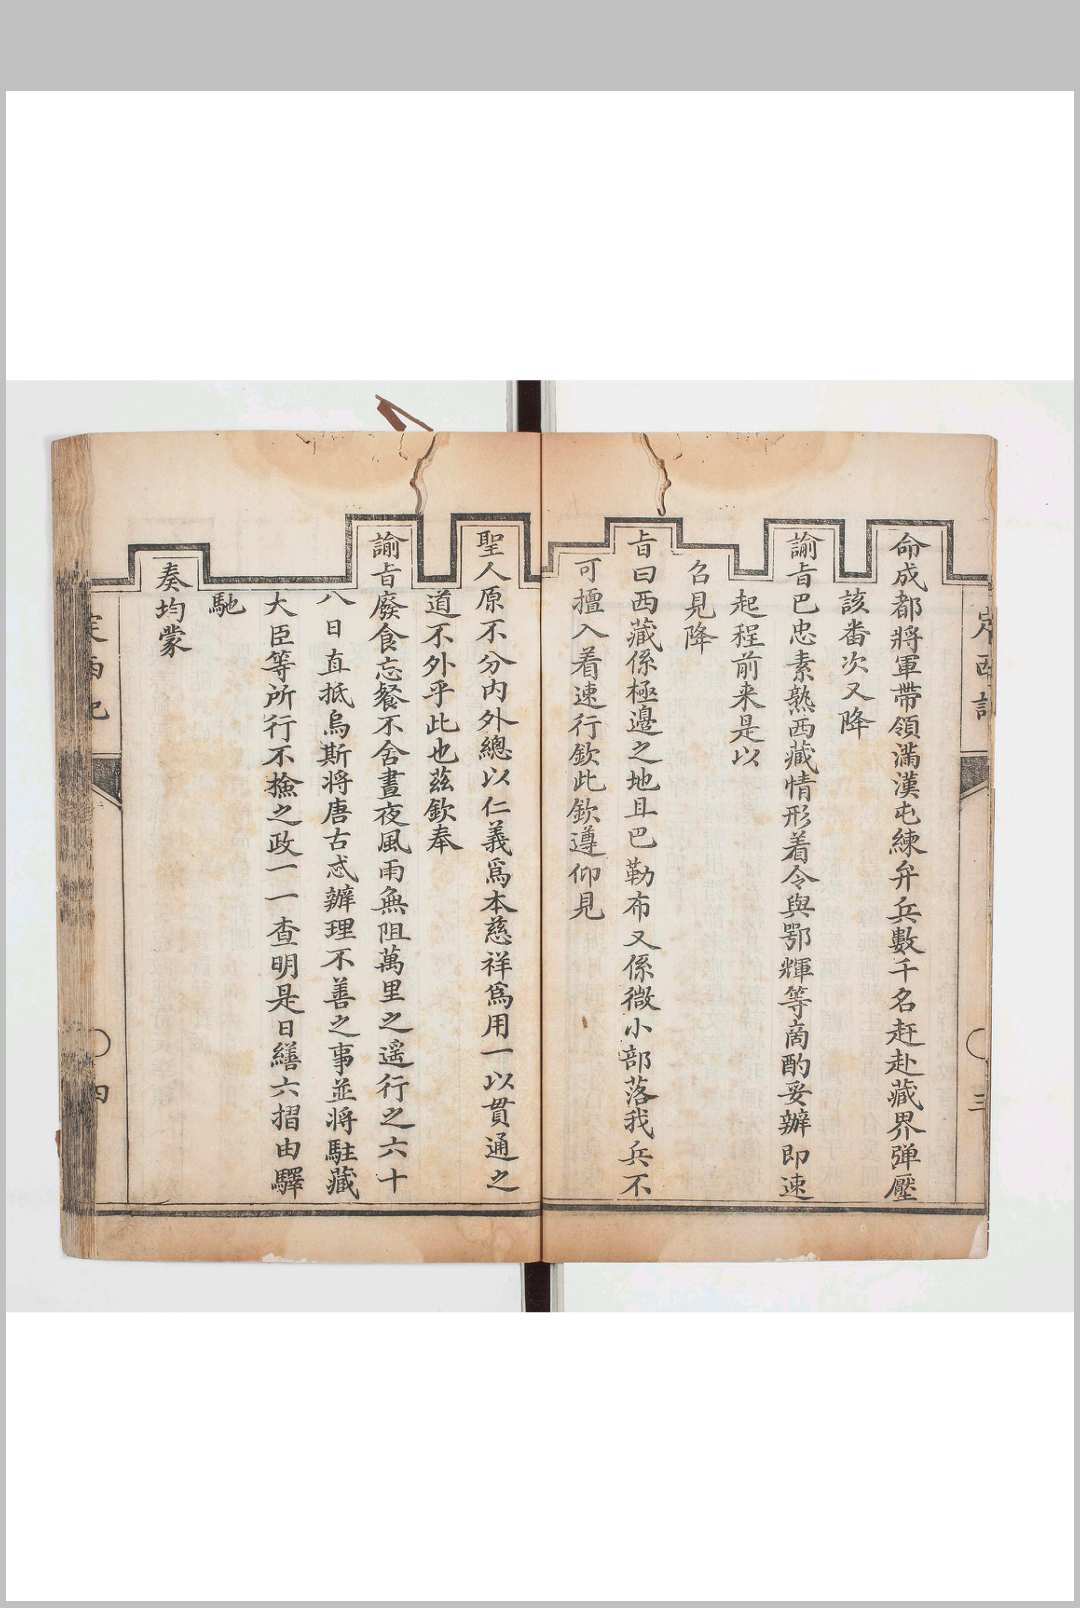 命成都將軍帶領滿漢屯練弁兵數千名赶赴藏界弹壓
該番次又降
諭旨巴忠素熟西藏情形着令與鄂輝等商酌妥辦即速
起程前来是以
召見降
旨曰西藏係極邊之地且巴勒布又係微小部落我兵不
可擅入着速行欽此欽遵仰見
聖人原不分内外總以仁義爲本慈祥爲用一以貫通之
道不外乎此也兹欽奉
諭旨廢食忘餐不舍晝夜風雨無阻萬里之遥行之六十
八日直抵烏斯将唐古忒辦理不善之事並將駐藏
大臣等所行不撿之政一一查明是日繕六摺由驛
馳
奏均蒙
三
四